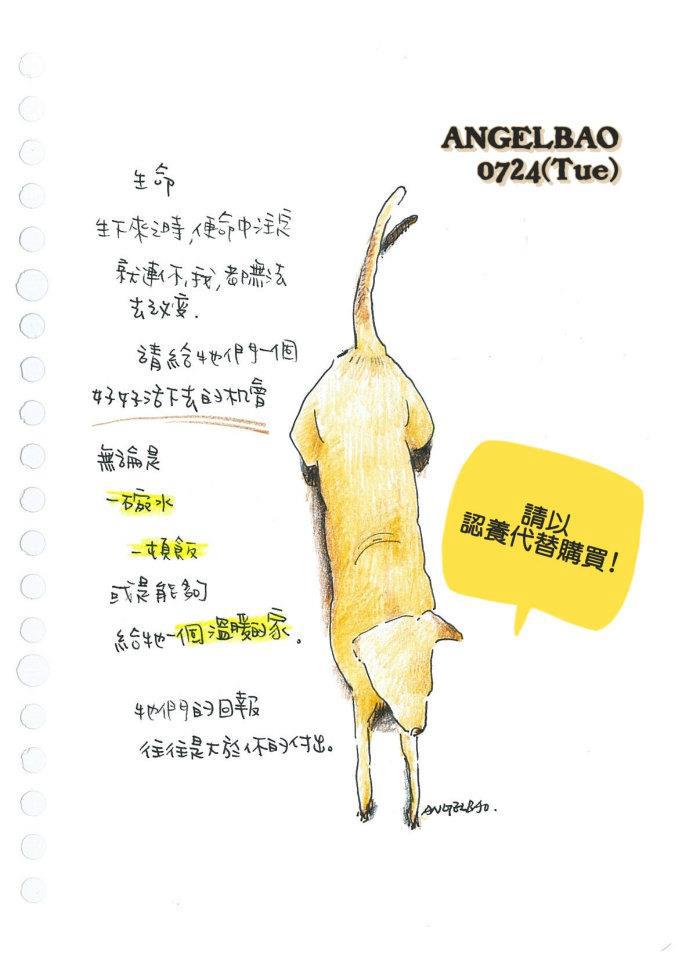 ANGELBAO
0724(Tue)
生命
生下來之時,便命中注定
就連你,我,都無法
去改變.
請給牠們一個
好好活下去的机會
無論是
一碗水
一頓飯
或是能夠
給牠一個溫暖的家。
牠們的回報
往往是大於你的付出。
請以
認養代替購買!
ANGELBAO.